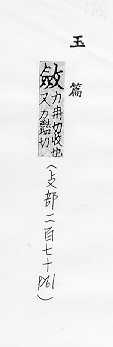 玉篇
斂力冉切收也
又力豔切
(攴部二百七十 P61)